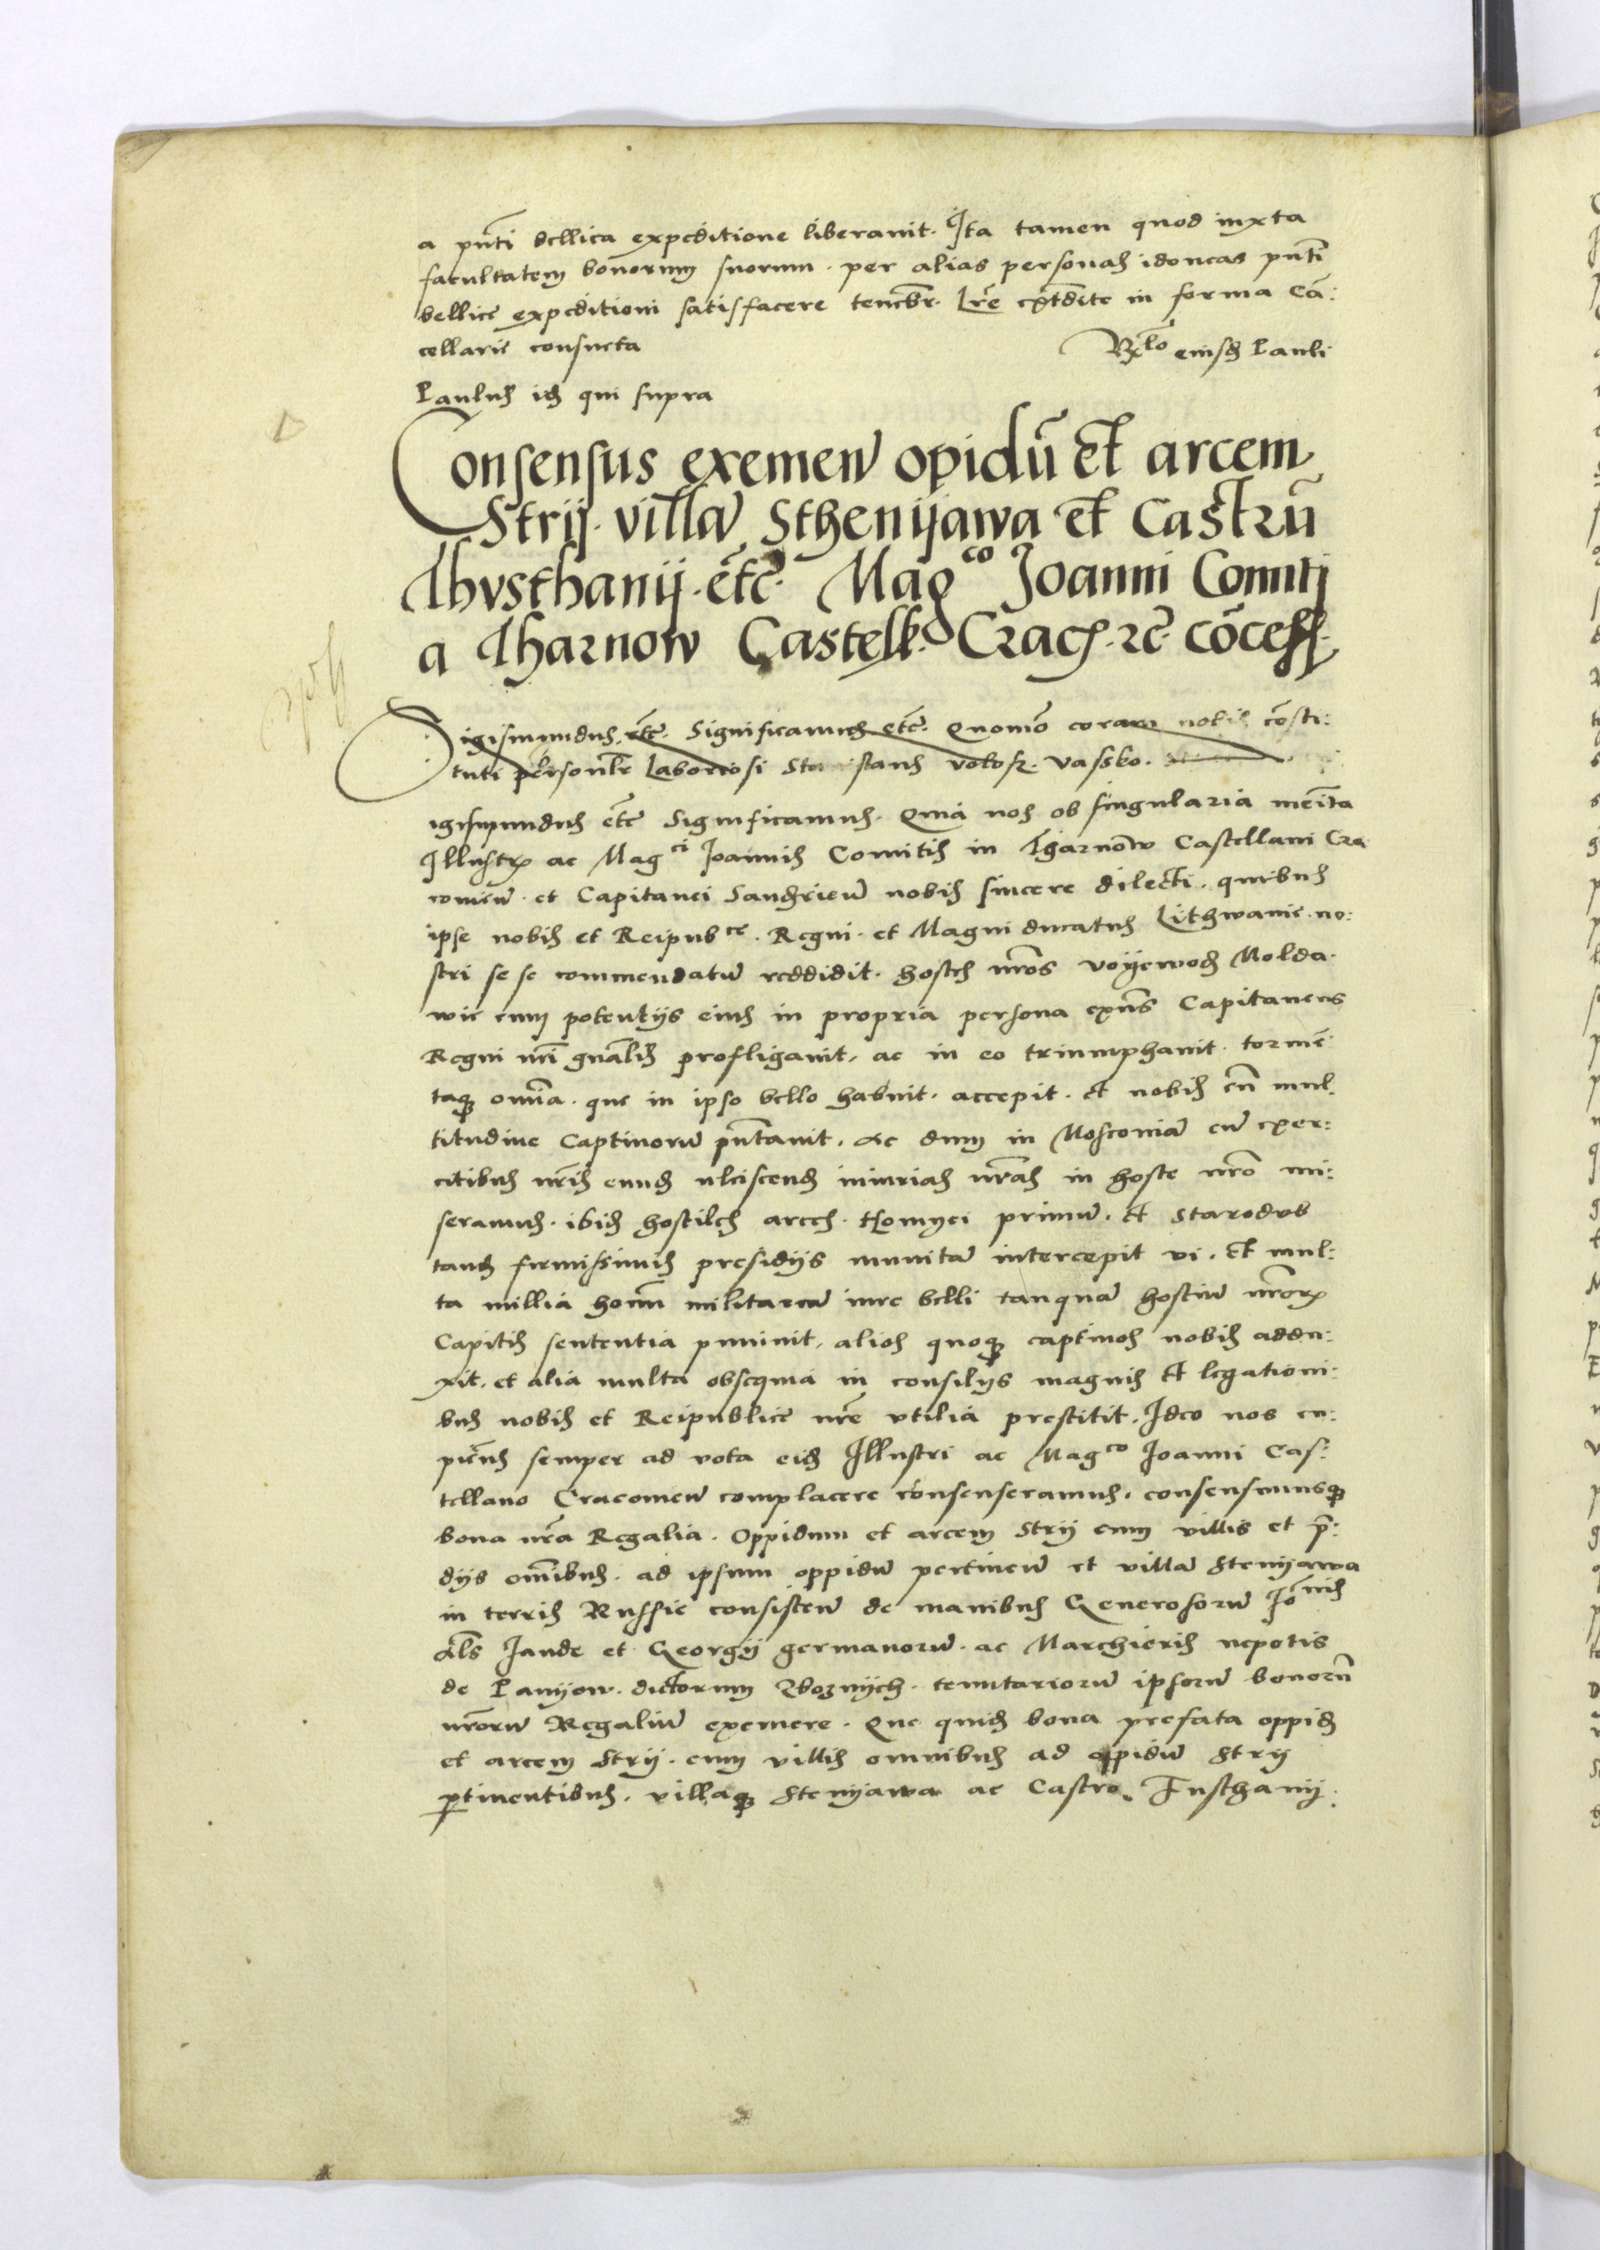 a pn̄ti bellica expeditione liberauit. Ita tamen quod iuxta
facultatem bonorum suorum. per alias personas idoneas pn̄ti
bellice expeditioni satisfacere teneb̄r. Lr̄e in forma Cā:
cellarie consueta eiusd Pauli
Paulus id qui supra
Consensus exemen̄ opidū et arcem
Strij. villā Sthenijawa et Castrū
Thvsthanij. etc̄. Mag^co Joanni Comiti
a Tharnow Castell.^o Crac. rc̄. cōcess.
Sigismundus etc̄. Significamus etc̄. Quomō coram nobis cōsti:
tuti Laboriosi vassko.
igismundus etc̄ Significamus. Quia nos ob singularia merita
Illustr ac Mag^ci Joannis Comitis in Tharnow Castellani Cra
comeñ. et Capitanei nobis sincere dilecti. quibus
ipse nobis et Reipub^ce. Regni. et Magni ducatus Lithwanie. no:
stri se se commendatū reddidit. hostes nr̄os voyewod Molda.
wie cum potentijs eius in propria persona exn̄s Capitaneus
Regni nr̄i gn̄alis profligauit, ac in eo triumphauit. tormē
taq omnia. que in ipso bello habuit. accepit. et nobis cū mul
titudine Captiuorū pn̄tauit. Ac dum in Mosconiā cū exer:
citibus nr̄is eund ulciscend iniurias nr̄as in hoste nr̄o mi:
seramus. ibid hostiles arces. Homyei primū. et Starodvb
tand firmissimis presidijs munitā intercepit vi. et mul:
ta millia hom̄ militariū iure belli tanquā hostiū nr̄or
Capitis sententia puniuit, alios quoq captiuos nobis addu:
xit. et alia multa obsequia in consilijs magnis et legationi:
bus nobis et Reipublice nr̄e vtilia prestitit. Ideo nos cu:
piēns semper ad vota eid Illustri ac Mag^co Joanni Cas:
tellano Cracomeñ complacere consenseramus. consensimusq
bona nr̄a Regalia. Oppidum et arcem Strij cum villis et p̄:
dijs omībus. ad ipsum oppidū pertineñ et villā Stenijawa
in terris Russie consisteñ de manibus Generosorū Jo^nis
al̄s Jande et Georgij germanorū. ac Marchieris nepotis
de Panijow. dictorum tenutariorū ipsorū bonorū
nr̄orū Regaliū eximere. Que quid bona prefata oppid
et arcem Strij. cum villis omnibus ad oppidū Strij
ptinentibus. villaq Stenijawa ac Castro Tusthanij.